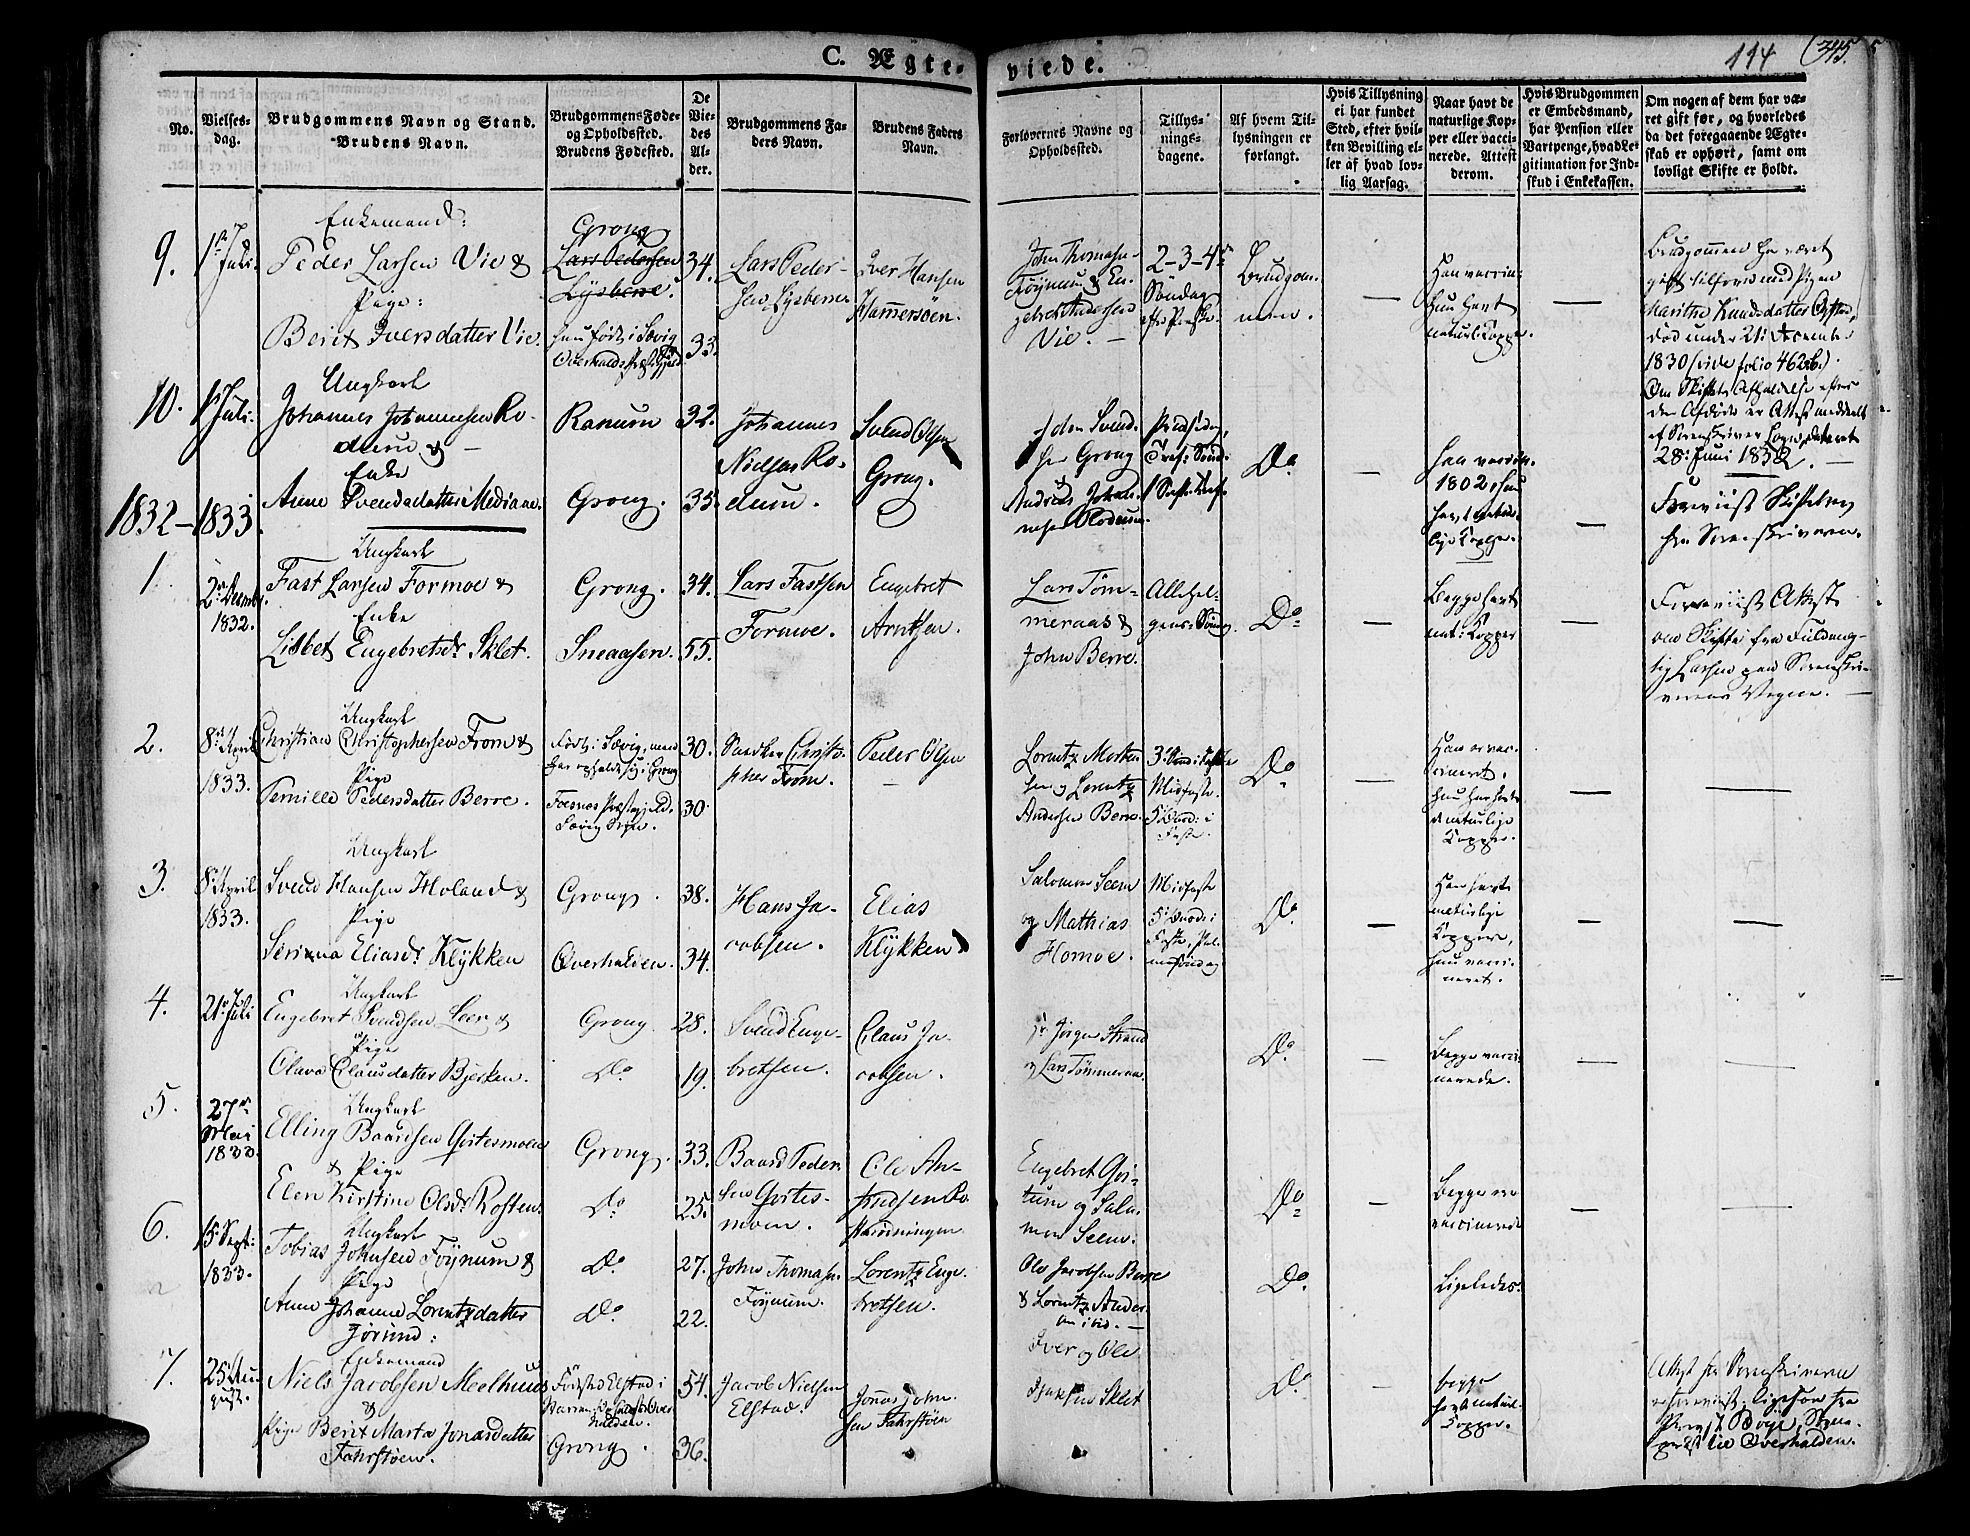 C. Ægteviede.
114
345.
No.
Vielses-
dag.
Brudgommens Navn og Stand.
Brudens Navn.
Brudgommens Føde-
og Opholdssted.
Brudens Fødested.
De
Vie-
des
Al-
der.
Brudgommens Fa-
ders Navn.
Brudens Faders
Navn.
Forlovernes Navne og
Opholdssted.
Tillys-
nings-
dagene.
Af hvem Til-
lysningen er
forlangt.
Hvis Tillysning
ei har fundet
Sted, efter hvil-
ken Bevilling el-
ler af hvad lov-
lig Aarsag.
Naar havt de
naturlige Kop-
per eller vacci-
nerede. Attest
derom.
Hvis Brudgommen
er Embedsmand,
har Pension eller
Vartpenge, hvad Le-
gitimation for Ind-
skud i Enkekassen.
Om nogen af dem har væ-
ret gift før, og hvorledes
da det foregaaende Ægte-
skab er ophørt, samt om
lovligt Skifte er holdt.
9.
1ste Juli.
Enkemand:
Peder Larsen Vie &
Pige:
Berit Iversdatter Vie.
Grong
Lars Pedersen
Lysberre.
hun født i Sævig
Overhalds Præstegjeld
34.
33.
Lars Peder-
sen Lysberre
Iver Hansen
Hammersøen.
John Thomasen
Føynum & En-
gebret Andersen
Vie. —
2-3-4de
Søndag
efter Pinse.
Brudgom-
men.
—
Han vaccin:
Hun havt
naturl: Kopper.
—
Brudgommen har været
gift tilforn med Pigen
Marithe Knudsdatter
død under 21de
1830 (vide folio 462 b.).
Om Skiftets Afholdelse efter
den Afdøde er Attest meddelt
af Sorenskriver dateret
28de Juni 1832. —
10.
1 Juli.
Ungkarl
Johannes Johannesen Ro-
dum & —
Enke
Anne Svendsdatter Mediaae.
Ranum
Grong.
32.
35.
Johannes
Nielsen Ro-
dum.
Svend Olsen
Grong.
John Svend-
sen Grong
Andreas Johan-
nesen Rodum.
Do
—
Han vaccin.
1802, Hun
havt natur-
lige Kopper.
—
Foreviist Skiftebrev
fra Sorenskriveren.
1832 - 1833.
1.
2de Decembr.
1832.
Ungkarl
Fast Larsen Formoe &
Enke
Lisbet Engebretsdr Sklet.
Grong.
Sneaasen.
34.
55.
Lars Fastsen
Formoe.
Engebret
Arntsen.
Lars Tøm-
meraas &
John Berre.
Allehel-
gens Søndag.
Do
—
Begge havt
nat: Kopper
—
Foreviist Attest
om Skifte fra Fuldmæg-
tig Larsen paa Sorenskri-
verens Vegne. —
2.
8de April
1833.
Ungkarl
Christian Christophersen From &
Pige
Pernille Pedersdatter Berre.
Født i Sævig, men
har opholdt sig i Grong
Foesnes Præstegjeld,
Sævig Sogn.
30.
30
Christo-
pher From.
Peder Olsen
—
Lorentz Morten-
sen og Lorentz
Andersen Berre
3die Sønd: i Faste
Midfaste
5te Sønd: i
Faste.
Do
—
Han er vac-
cineret.
Hun har havt
de naturlige
Kopper.
—
—
3.
8de April
1833.
Ungkarl
Svend Hansen Holand &
Pige
Serinna Eliasdr Klykken
Grong.
Overhalden.
38.
34.
Hans Ja-
cobsen.
Elias
Klykken
Salomon Seem
og Mathias
Homoe.
Midfaste
5te Sønd: i
Faste, Pal-
mesøndag
Do
—
Han havt
naturlige
Koppere,
Hun vacci-
neret.
—
—
4.
21de Juli
Ungkarl
Engebret Svendsen Leer &
Pige
Olava Clausdatter Bjerken.
Grong.
Do
28.
19.
Svend Enge-
bretsen.
Claus Ja-
cobsen.
Hr. Jørgen Strand
og Lars Tømmeraas.
Do
—
Begge vacci-
nerede.
—
—
5.
27de
Mai
1833.
Ungkarl
Elling Baardsen Gartesmoen
& Pige
Elen Kirstine Olsdr Rosten.
Grong.
Do
33.
25.
Baard Peder-
sen Gartes-
moen.
Ole An-
Engebret Gar-
tum og Salo-
mon Seem.
Do
—
Begge ere
vaccinerede
—
—
6.
15de Sept:
1833.
Ungkarl
Tobias Johnsen Føynum &
Pige
Anne Johanne Lorentzdatter
Jørund:
Do
Do
27.
22.
John Thomasen
Føynum.
Lorentz Enge-
bretsen.
Ole Jacobsen Berre
& Lorentz Ander-
sen ibid. —
Do
—
Ligeledes.
—
7.
25de Au-
gust.
Enkemand
Niels Jacobsen Meelhuus
&
Pige Berit Marta Jonasdatter
Fahrstøen.
Født paa Elstad i
Grong.
54.
36.
Jacob Nielsen
Elstad.
Jonas John-
sen Fahrstøen
Iver og Ole
Sklet
Do
—
begge
havt naturl:
Kopper.
—
Attest fra Sorenskriveren
er foreviist; ligesom fra
Præst Bøje, Sogne-
præst til Overhalden.